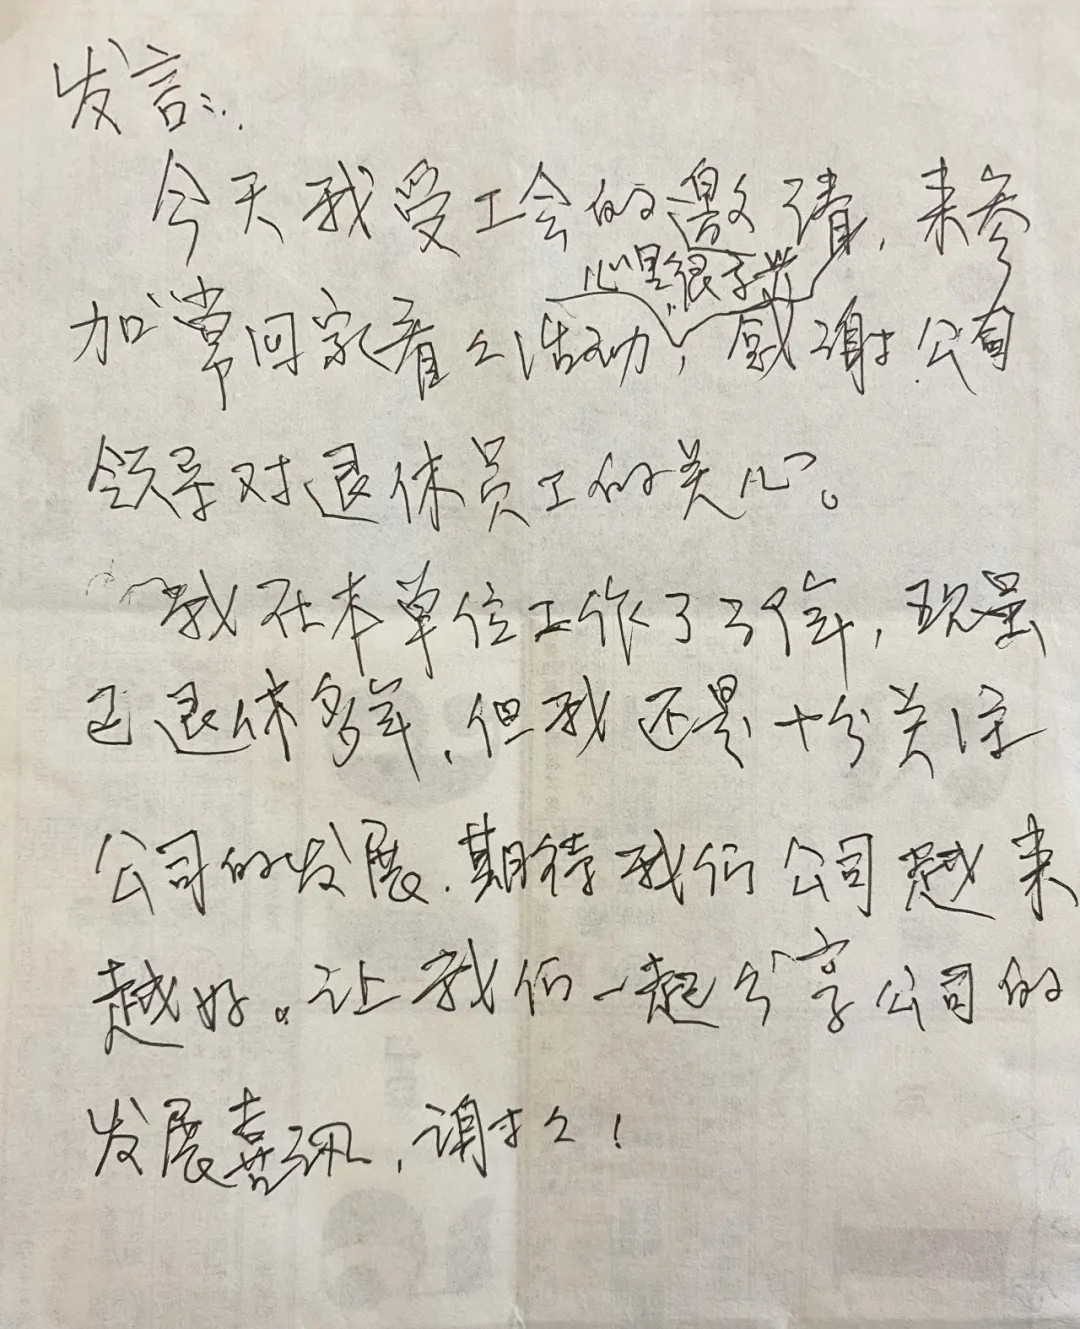 发言:
今天我受工会的邀请,来参
心里很高兴
加“常回家看々活动,感谢公司
领导对退休员工的关心。
我在本单位工作了39年,现虽
已退休多年,但我还是十分关注
公司的发展.期待我们公司越来
越好。让我们一起分享公司的
发展喜讯,谢々!